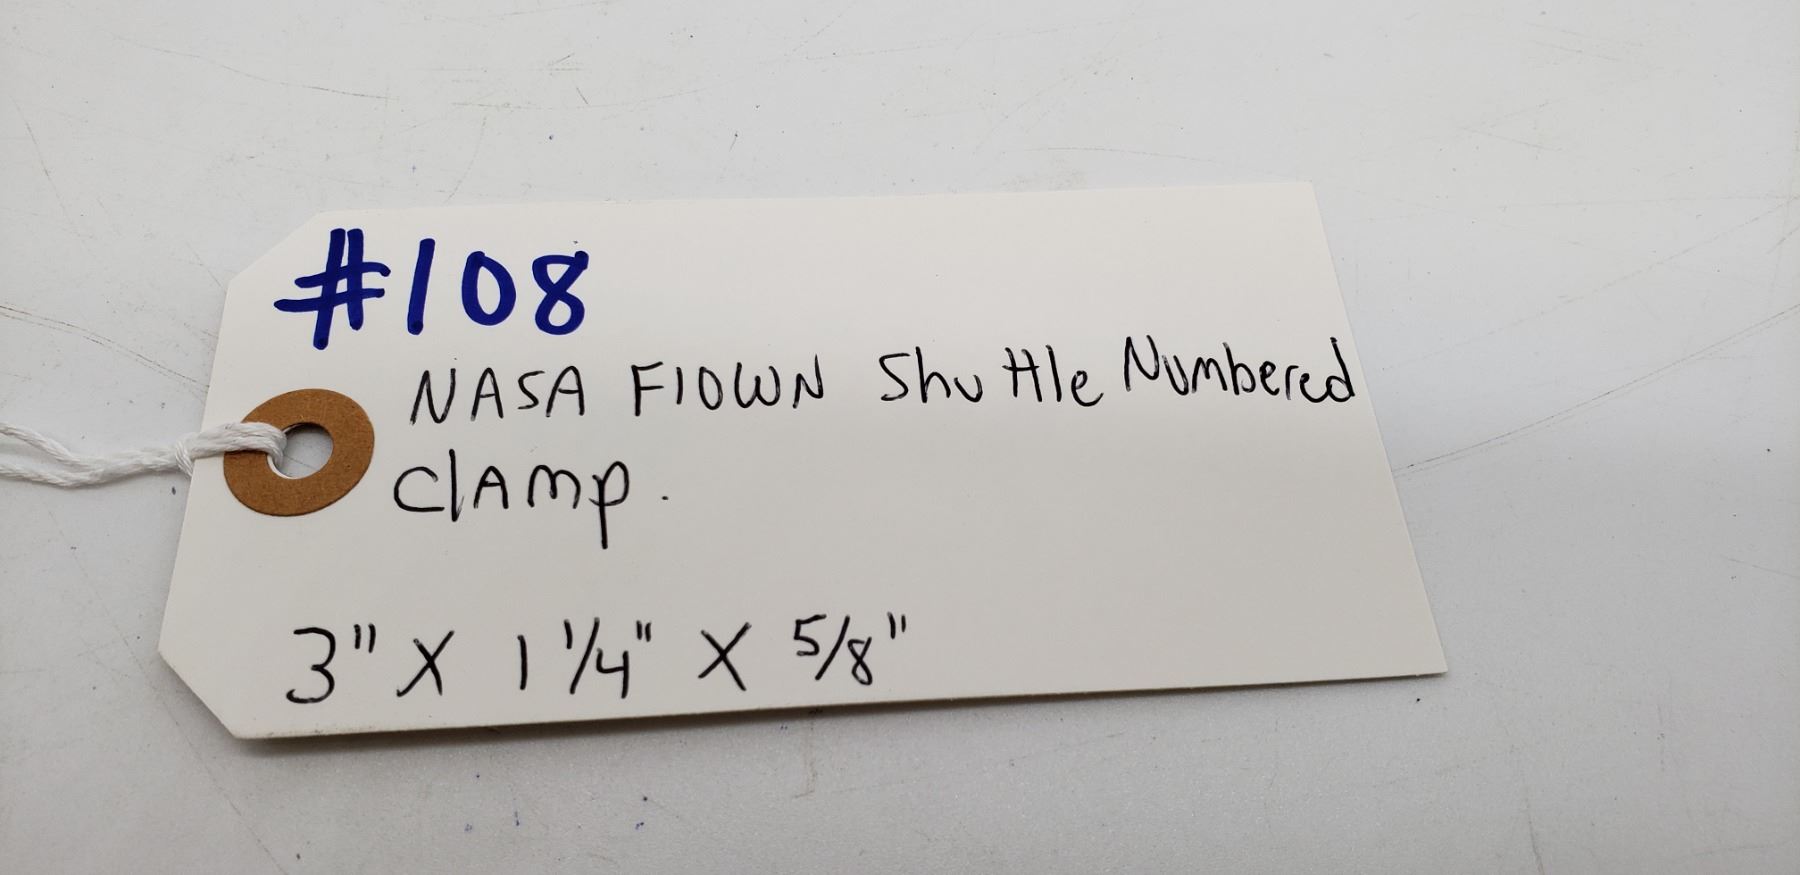 #108
NASA Flown Shuttle Numbered
Clamp.
3" X 1 1/4" X 5/8"